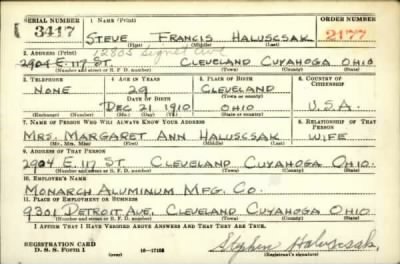 SERIAL NUMBER 1. NAME (Print) ORDER NUMBER
3417 STEVE FRANCIS HALUSCSAK 2177
(First) (Middle) (Last)
2. ADDRESS (Print) 12805 Signet Ave
2904 E. 117 ST. CLEVELAND CUYAHOGA OHIO
(Number and street or R. F. D. number) (Town) (County) (State)
3. TELEPHONE 4. AGE IN YEARS 5. PLACE OF BIRTH 6. COUNTRY OF CITIZENSHIP
NONE 29 CLEVELAND
DATE OF BIRTH (Town or county)
DEC 21 1910 OHIO U.S.A.
(Mo.) (Day) (Yr.) (State or country)
7. NAME OF PERSON WHO WILL ALWAYS KNOW YOUR ADDRESS 8. RELATIONSHIP OF THAT PERSON
MRS. MARGARET ANN HALUSCSAK WIFE
(Mr., Mrs., Miss) (First) (Middle) (Last)
9. ADDRESS OF THAT PERSON
2904 E. 117 ST. CLEVELAND CUYAHOGA OHIO.
(Number and street or R. F. D. number) (Town) (County) (State)
10. EMPLOYER'S NAME
MONARCH ALUMINUM MFG. CO.
11. PLACE OF EMPLOYMENT OR BUSINESS
9301 DETROIT AVE. CLEVELAND CUYAHOGA OHIO
(Number and street or R. F. D. number) (Town) (County) (State)
I AFFIRM THAT I HAVE VERIFIED ABOVE ANSWERS AND THAT THEY ARE TRUE.
REGISTRATION CARD
D. S. S. Form 1 (over) Stephen Haluscsak.
(Registrant's signature)